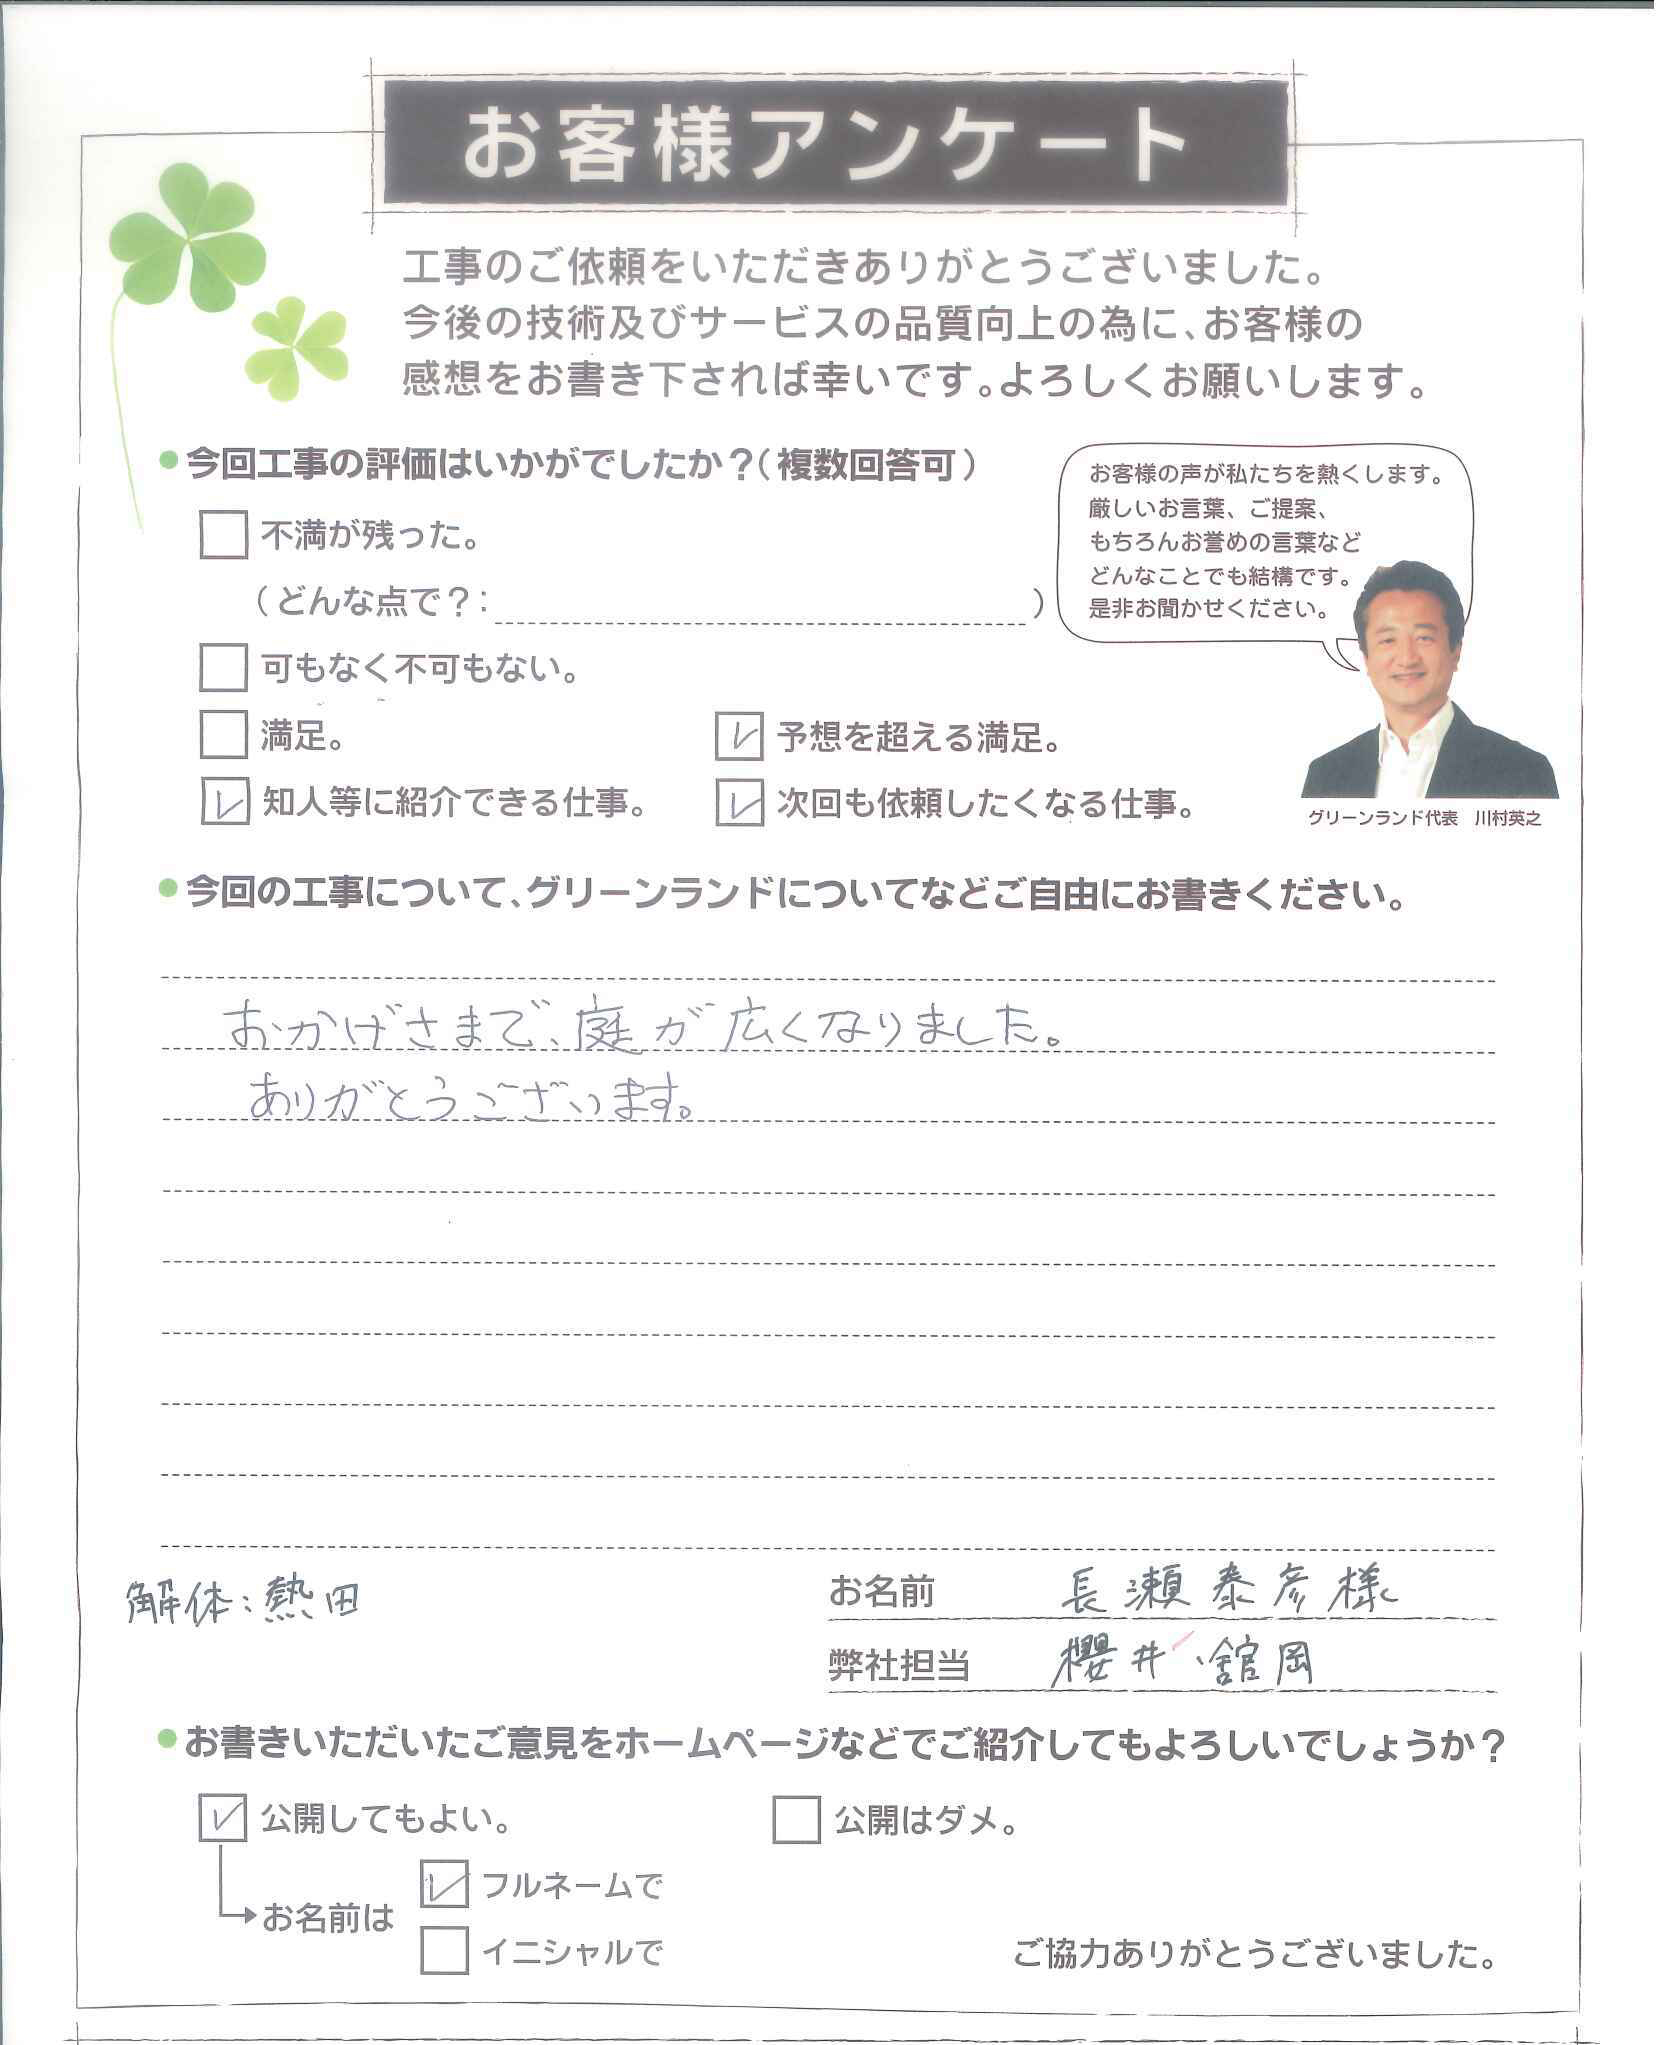 お客様アンケート
工事のご依頼をいただきありがとうございました。
今後の技術及びサービスの品質向上の為に、お客様の
感想をお書き下されば幸いです。よろしくお願いします。
今回工事の評価はいかがでしたか？（複数回答可）
お客様の声が私たちを熱くします。
厳しいお言葉、ご提案、
もちろんお誉めの言葉など
どんなことでも結構です。
是非お聞かせください。
グリーンランド代表　川村英之
不満が残った。
（どんな点で？：　）
可もなく不可もない。
満足。　予想を超える満足。
知人等に紹介できる仕事。　次回も依頼したくなる仕事。
今回の工事について、グリーンランドについてなどご自由にお書きください。
おかげさまで、庭が広くなりました。
ありがとうございます。
解体：熱田
お名前　長瀬泰彦様
弊社担当　櫻井、舘岡
お書きいただいたご意見をホームページなどでご紹介してもよろしいでしょうか？
公開してもよい。　公開はダメ。
お名前は
フルネームで
イニシャルで
ご協力ありがとうございました。